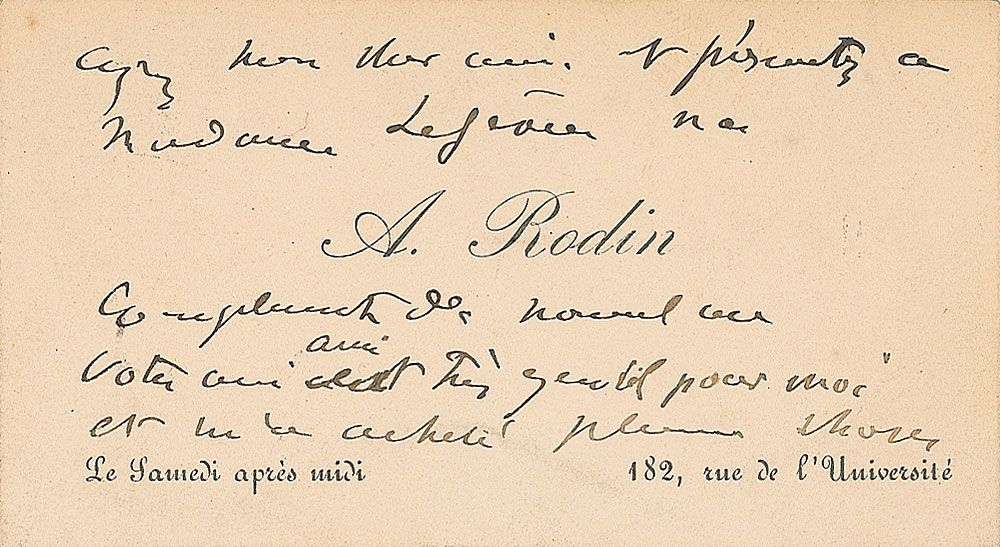 mon cher ami. et présentez a
Madame
A. Rodin
Compliments de nouvel an
ami
Votre ami est très gentil pour moi
et m'a acheté plusieurs choses
Le Samedi après midi
182, rue de l'Université